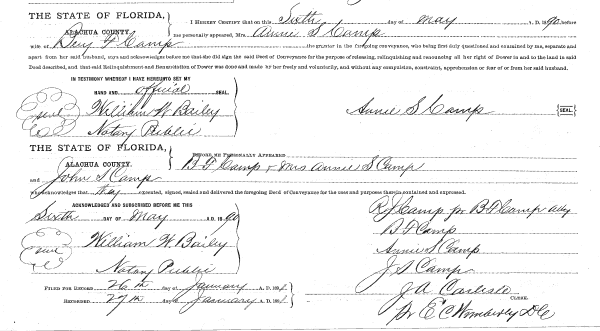 THE STATE OF FLORIDA,
ALACHUA COUNTY.
I HEREBY CERTIFY that on this Sixth day of May A. D. 1890, before
me personally appeared, Mrs. Annie S Camp
wife of Benj F Camp the grantor in the foregoing conveyance, who being first duly questioned and examined by me, separate and
apart from her said husband, says and acknowledges before me that she did sign the said Deed of Conveyance for the purpose of releasing, relinquishing and renouncing all her right of Dower in and to the land in said
Deed described, and that said Relinquishment and Renunciation of Dower was done and made by her freely and voluntarily, and without any compulsion, constraint, apprehension or fear of or from her said husband.
IN TESTIMONY WHEREOF I HAVE HEREUNTO SET MY
HAND AND official SEAL.
Seal William W. Bailey
Notary Public
Annie S Camp SEAL.
THE STATE OF FLORIDA,
ALACHUA COUNTY.
BEFORE ME PERSONALLY APPEARED
B F Camp & Mrs Annie S Camp
and John S Camp
who acknowledges that they executed, signed, sealed and delivered the foregoing Deed of Conveyance for the uses and purposes therein contained and expressed.
ACKNOWLEDGED AND SUBSCRIBED BEFORE ME THIS
Sixth DAY OF May A. D. 1890
Seal William W. Bailey
Notary Public
R J Camp for B F Camp Atty
B F Camp
Annie S Camp
J S Camp
FILED FOR RECORD 26th day of January A. D. 1891
RECORDED 27th day of January A. D. 1891
J A Carlisle CLERK.
Pr E C Wimberly DC